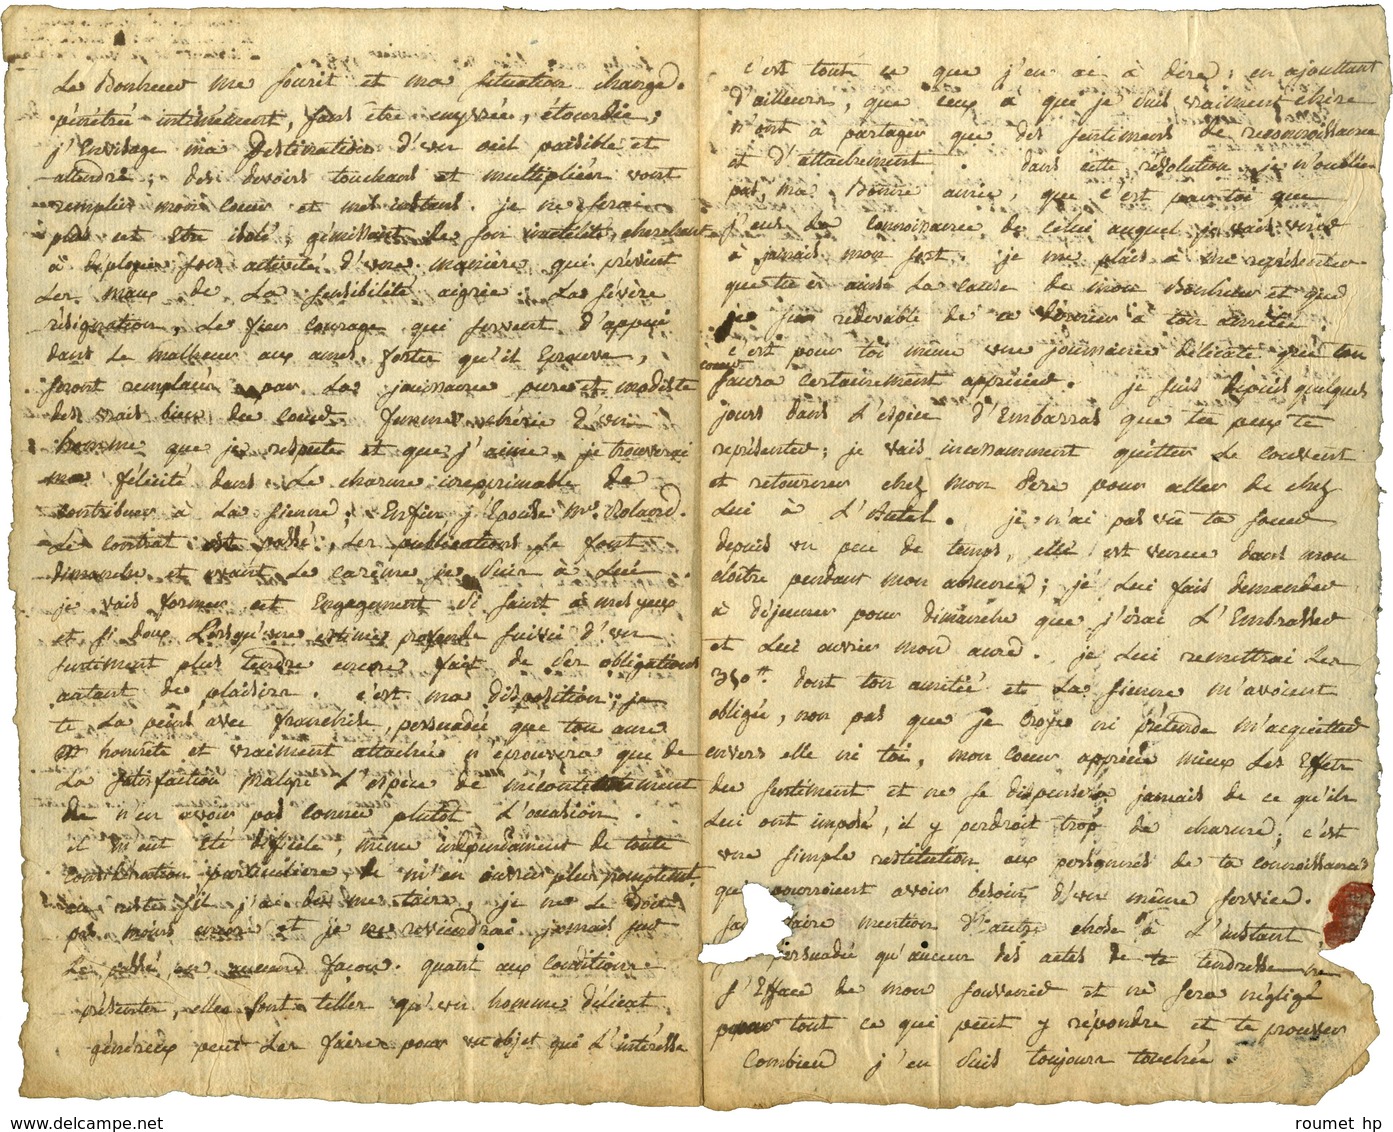 Le Bonheur me sourit et ma situation change.
pénétrée intimement, sans être enyvrée, étourdie;
j'Envisage ma Destination d'un oeil paisible et
attendri; des devoirs touchans et multipliés vont
remplir mon coeur et mes instans. je ne serai
plus cet être isolé, gémissant de son inutilité, cherchant
à déployer son activité d'une manière qui prévient
Les maux de La sensibilité aigrie. La sévère
résignation, Le fier courage qui servent d'appui
dans Le malheur aux ames fortes qu'il Eprouve,
seront remplacés par La jouissance pure et modeste
des vrais bien du coeur. femme chérie d'un
homme que je respecte et que j'aime, je trouverai
ma félicité dans Le charme inexprimable de
contribuer à La sienne; Enfin j'Epouse Mr. Roland.
Le contrat est passé, Les publications se font
dimanche et avant Le carême je suis à Lui.
je vais former cet Engagement si saint à mes yeux
et si doux Lorsqu'une estime profonde suivie d'un
sentiment plus tendre encore fait de ses obligations
autant de plaisirs. c'est ma disposition; je
te La peins avec franchise, persuadée que ton ame
honnete et vraiment attachée n'éprouvera que de
La satisfaction malgré L'espèce de mécontentement
De n'en avoir pas connu plutôt L'occasion.
il m'eut été dificile, même indépendament de toute
considération particulière de m'en ouvrir plus promptement
au reste si j'ai dû me taire, je ne Le dois
pas moins encore et je ne reviendrai jamais sur
Le passé en aucune façon. quant aux conditions
présentes, elles sont telles qu'un homme délicat
généreux peut Les faire pour un objet qui L'intéresse
c'est tout ce que j'en ai à dire; en ajoutant
d'ailleurs, que ceux à que je suis vraiment chère
n'ont à partager que des sentimens de reconnoissance
et d'attachement. dans cette résolution je n'oublie
pas, ma Bonne amie, que c'est par toi que
j'eus La connoissance de celui auquel je vais unir
à jamais mon sort. je me plais à me représenter
que tu es ainsi La cause de mon Bonheur et que
je suis redevable de ce dernier à ton amitié.
c'est pour toi même une jouissance délicate que ton
coeur
saura certainement apprécier. je suis depuis quelques
jours dans L'espèce d'Embarras que tu peux te
représenter; je vais incessamment quitter Le couvent
et retourner chez mon Pere pour aller de chez
Lui à L'Autel. je n'ai pas vu ta soeur
depuis un peu de temps, elle est venue dans mon
cloître pendant mon absence; je Lui fais demander
à déjeuner pour dimanche que j'irai L'Embrasser
et Lui ouvrir mon ame. je Lui remettrai Les
350tt. dont ton amitié et La sienne m'avoient
obligée, non pas que je croye ni prétende m'acquitter
envers elle ni toi, mon coeur apprécie mieux Les Effets
du sentiment et ne se dispensera jamais de ce qu'ils
Lui ont imposé, il y perdroit trop de charme; c'est
une simple restitution aux personnes de ta connoissance
qui pourroient avoir besoin d'un même service.
faire mention d'autre chose à L'instant,
persuadée qu'aucun des actes de ta tendresse ne
s'Efface de mon souvenir et ne sera négligé
pour tout ce qui peut y répondre et te prouver
Combien j'en suis toujours touchée.
roumet hp